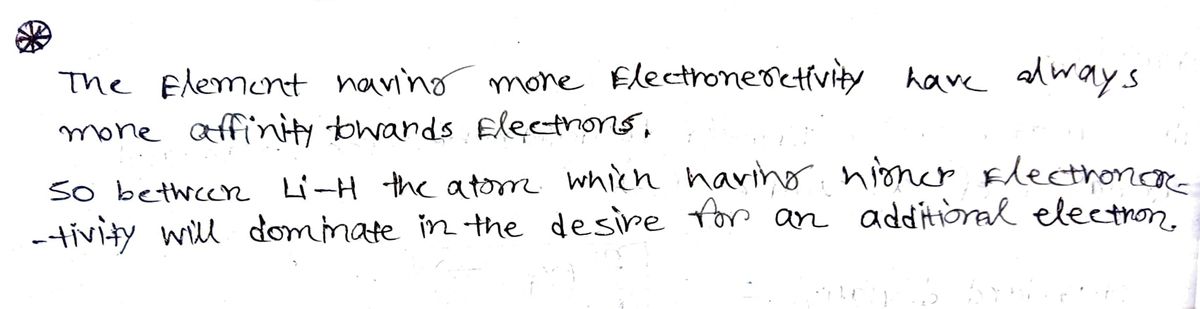 The Element having more Electronegetivity have always
more affinity towards Electrons.
So between Li-H the atom which having higher Electronege-
-tivity will dominate in the desire for an additional electron.